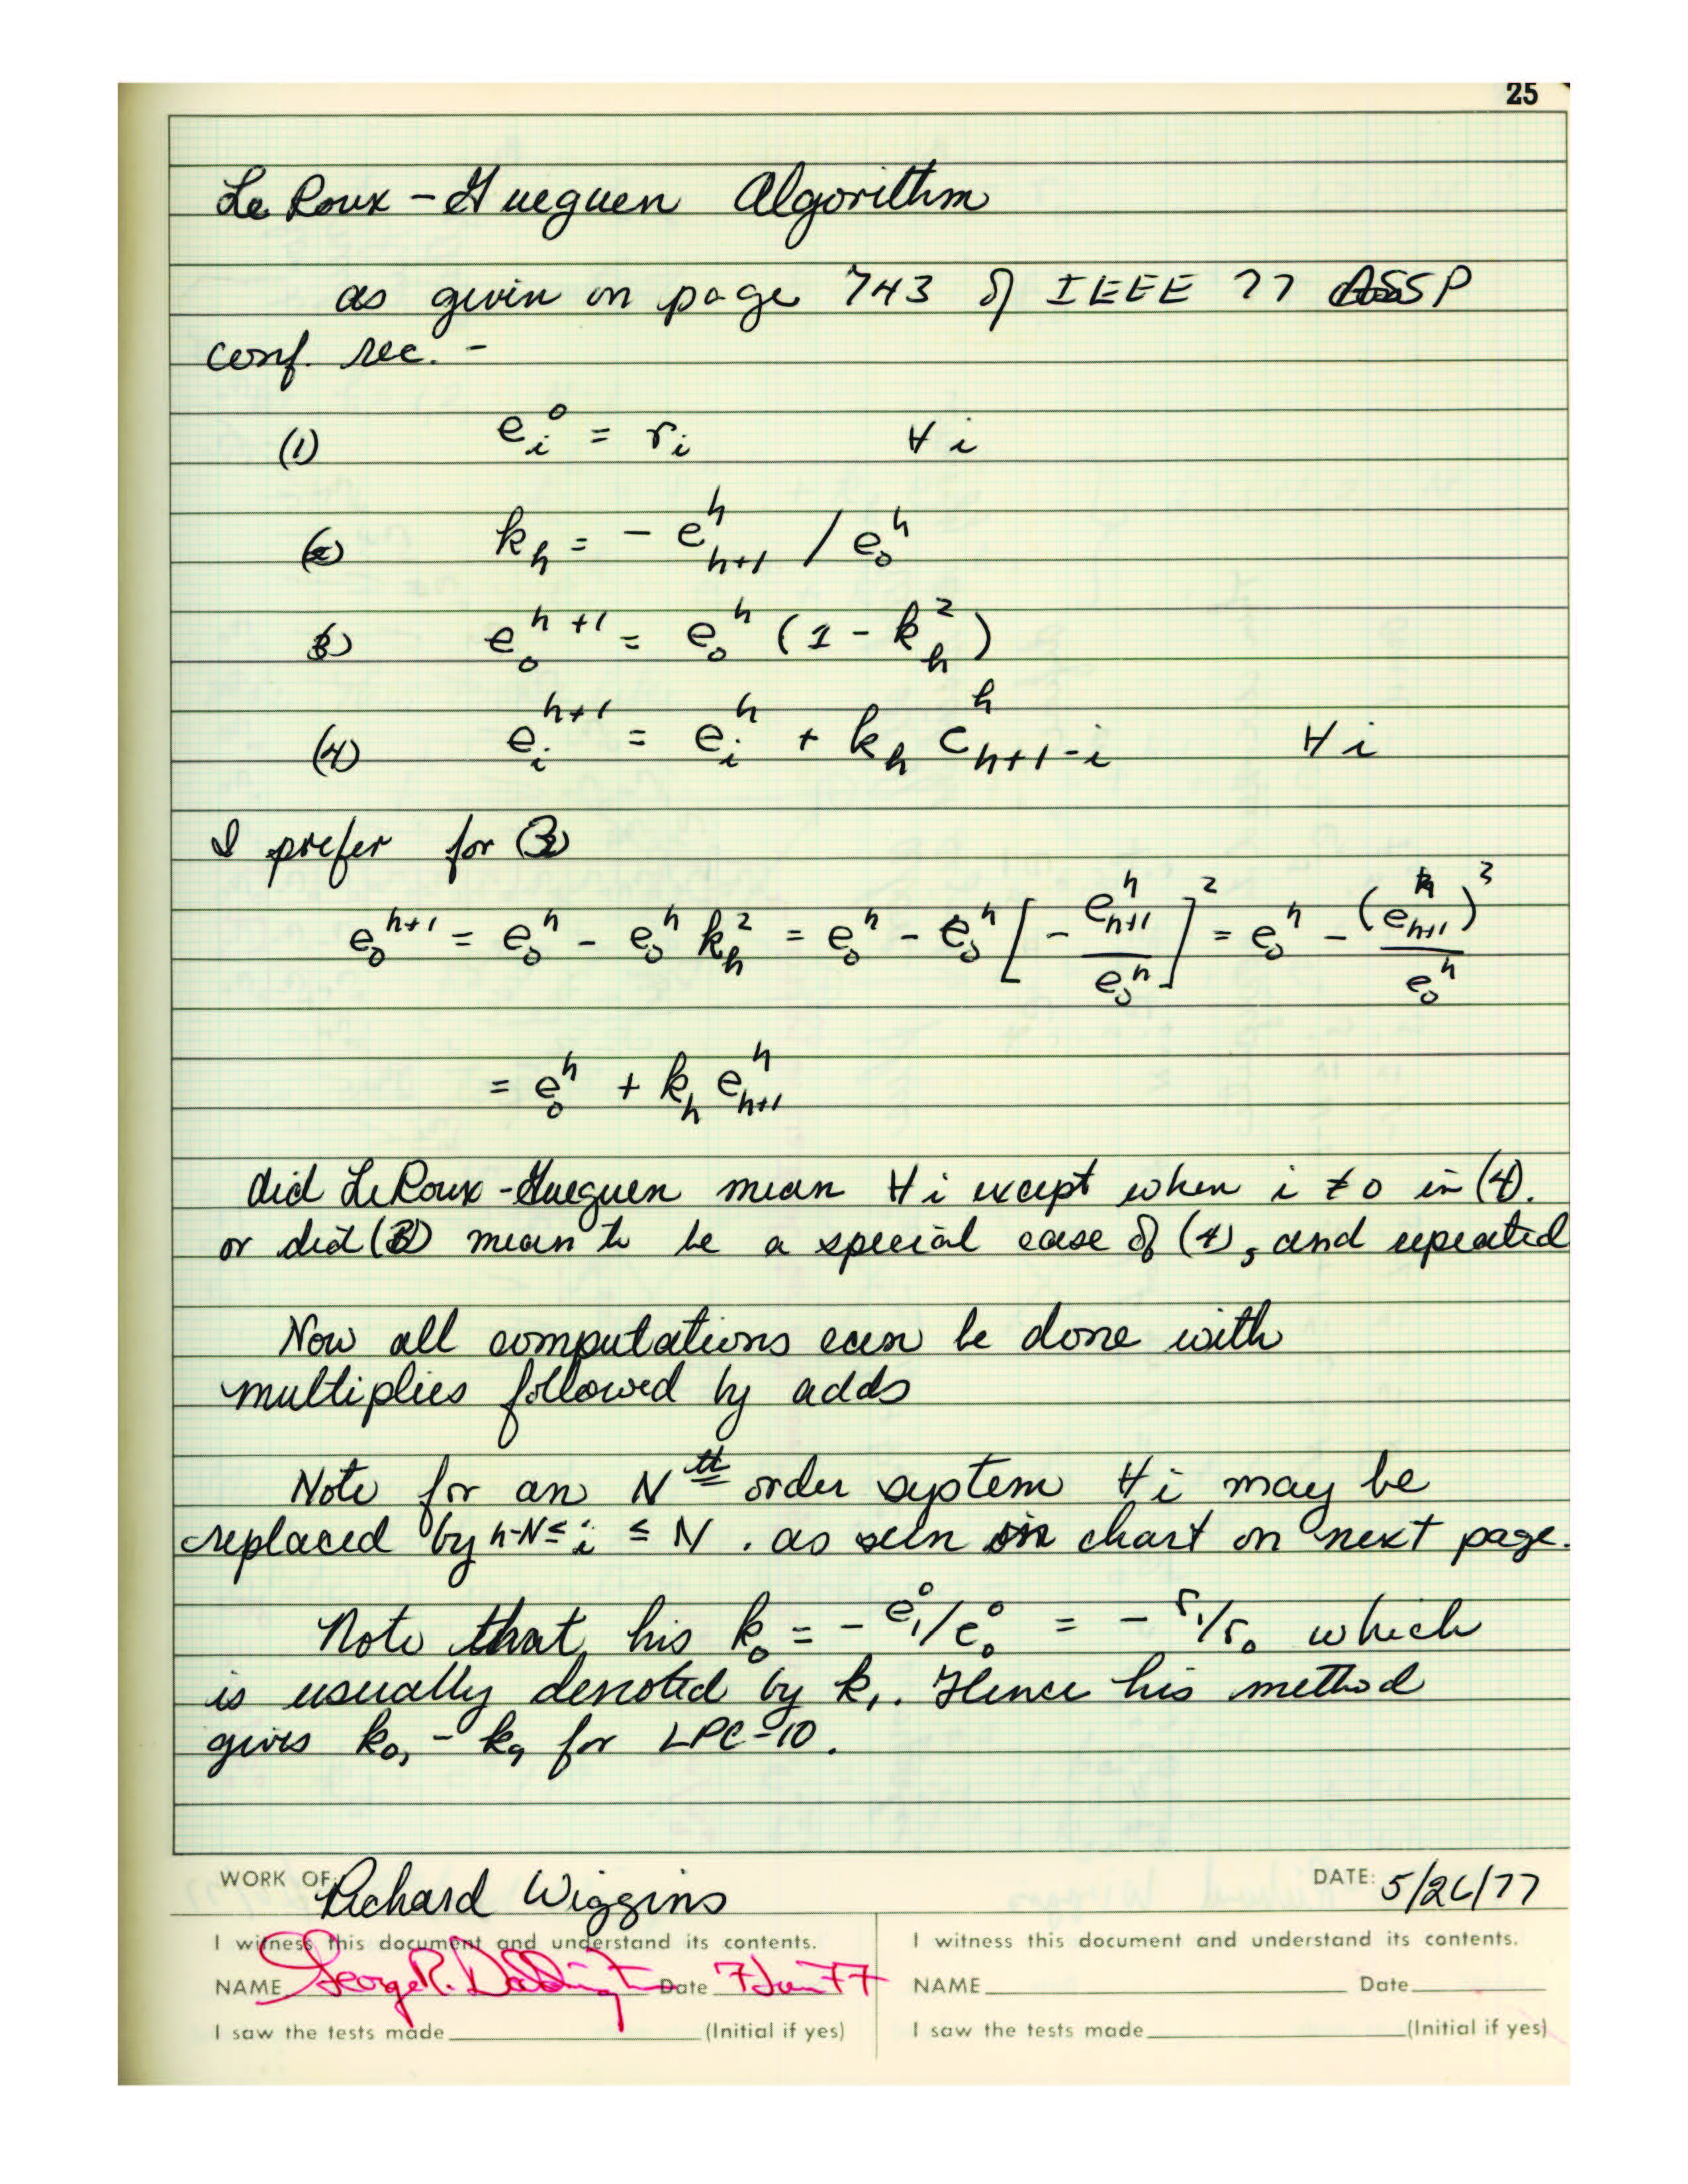 25
Le Roux - Gueguen Algorithm
as given on page 743 of IEEE 77 ASSP
conf. rec. -
(1) e_i^0 = r_i ∀ i
(2) k_h = - e_{h+1}^h / e_0^h
(3) e_0^{h+1} = e_0^h (1 - k_h^2)
(4) e_i^{h+1} = e_i^h + k_h e_{h+1-i}^h ∀ i
I prefer for (3)
e_0^{h+1} = e_0^h - e_0^h k_h^2 = e_0^h - e_0^h [ - e_{h+1}^h / e_0^h ]^2 = e_0^h - (e_{h+1}^h)^2 / e_0^h
= e_0^h + k_h e_{h+1}^h
did LeRoux-Gueguen mean ∀ i except when i ≠ 0 in (4).
or did (3) mean to be a special case of (4), and repeated
Now all computations can be done with
multiplies followed by adds
Note for an N th order system ∀ i may be
replaced by h-N ≤ i ≤ N . as seen in chart on next page.
Note that his k_0 = - e_1^0/e_0^0 = - r_1/r_0 which
is usually denoted by k_1. Hence his method
gives k_0, - k_9 for LPC-10.
WORK OF: Richard Wiggins DATE: 5/26/77
I witness this document and understand its contents. I witness this document and understand its contents.
NAME George R. Doddington Date 7 Jun 77 NAME Date
I saw the tests made (Initial if yes) I saw the tests made (Initial if yes)